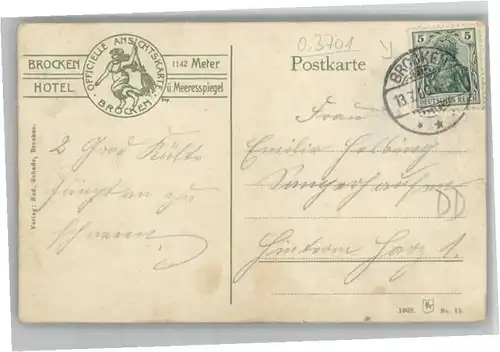 OFFICIELLE ANSICHTSKARTE
BROCKEN
BROCKEN 1142 Meter
HOTEL ü Meeresspiegel
0,3701
Postkarte
5 5
DEUTSCHES REICH
BROCKEN
13.7.
Frau
Emilie Helbing
Sangerhausen
Hintrm Harz 1.
DD
2 Grad Kälte
fängt an zu
schneien!
Verlag: Rud. Schade, Brocken.
1908. No. 11.